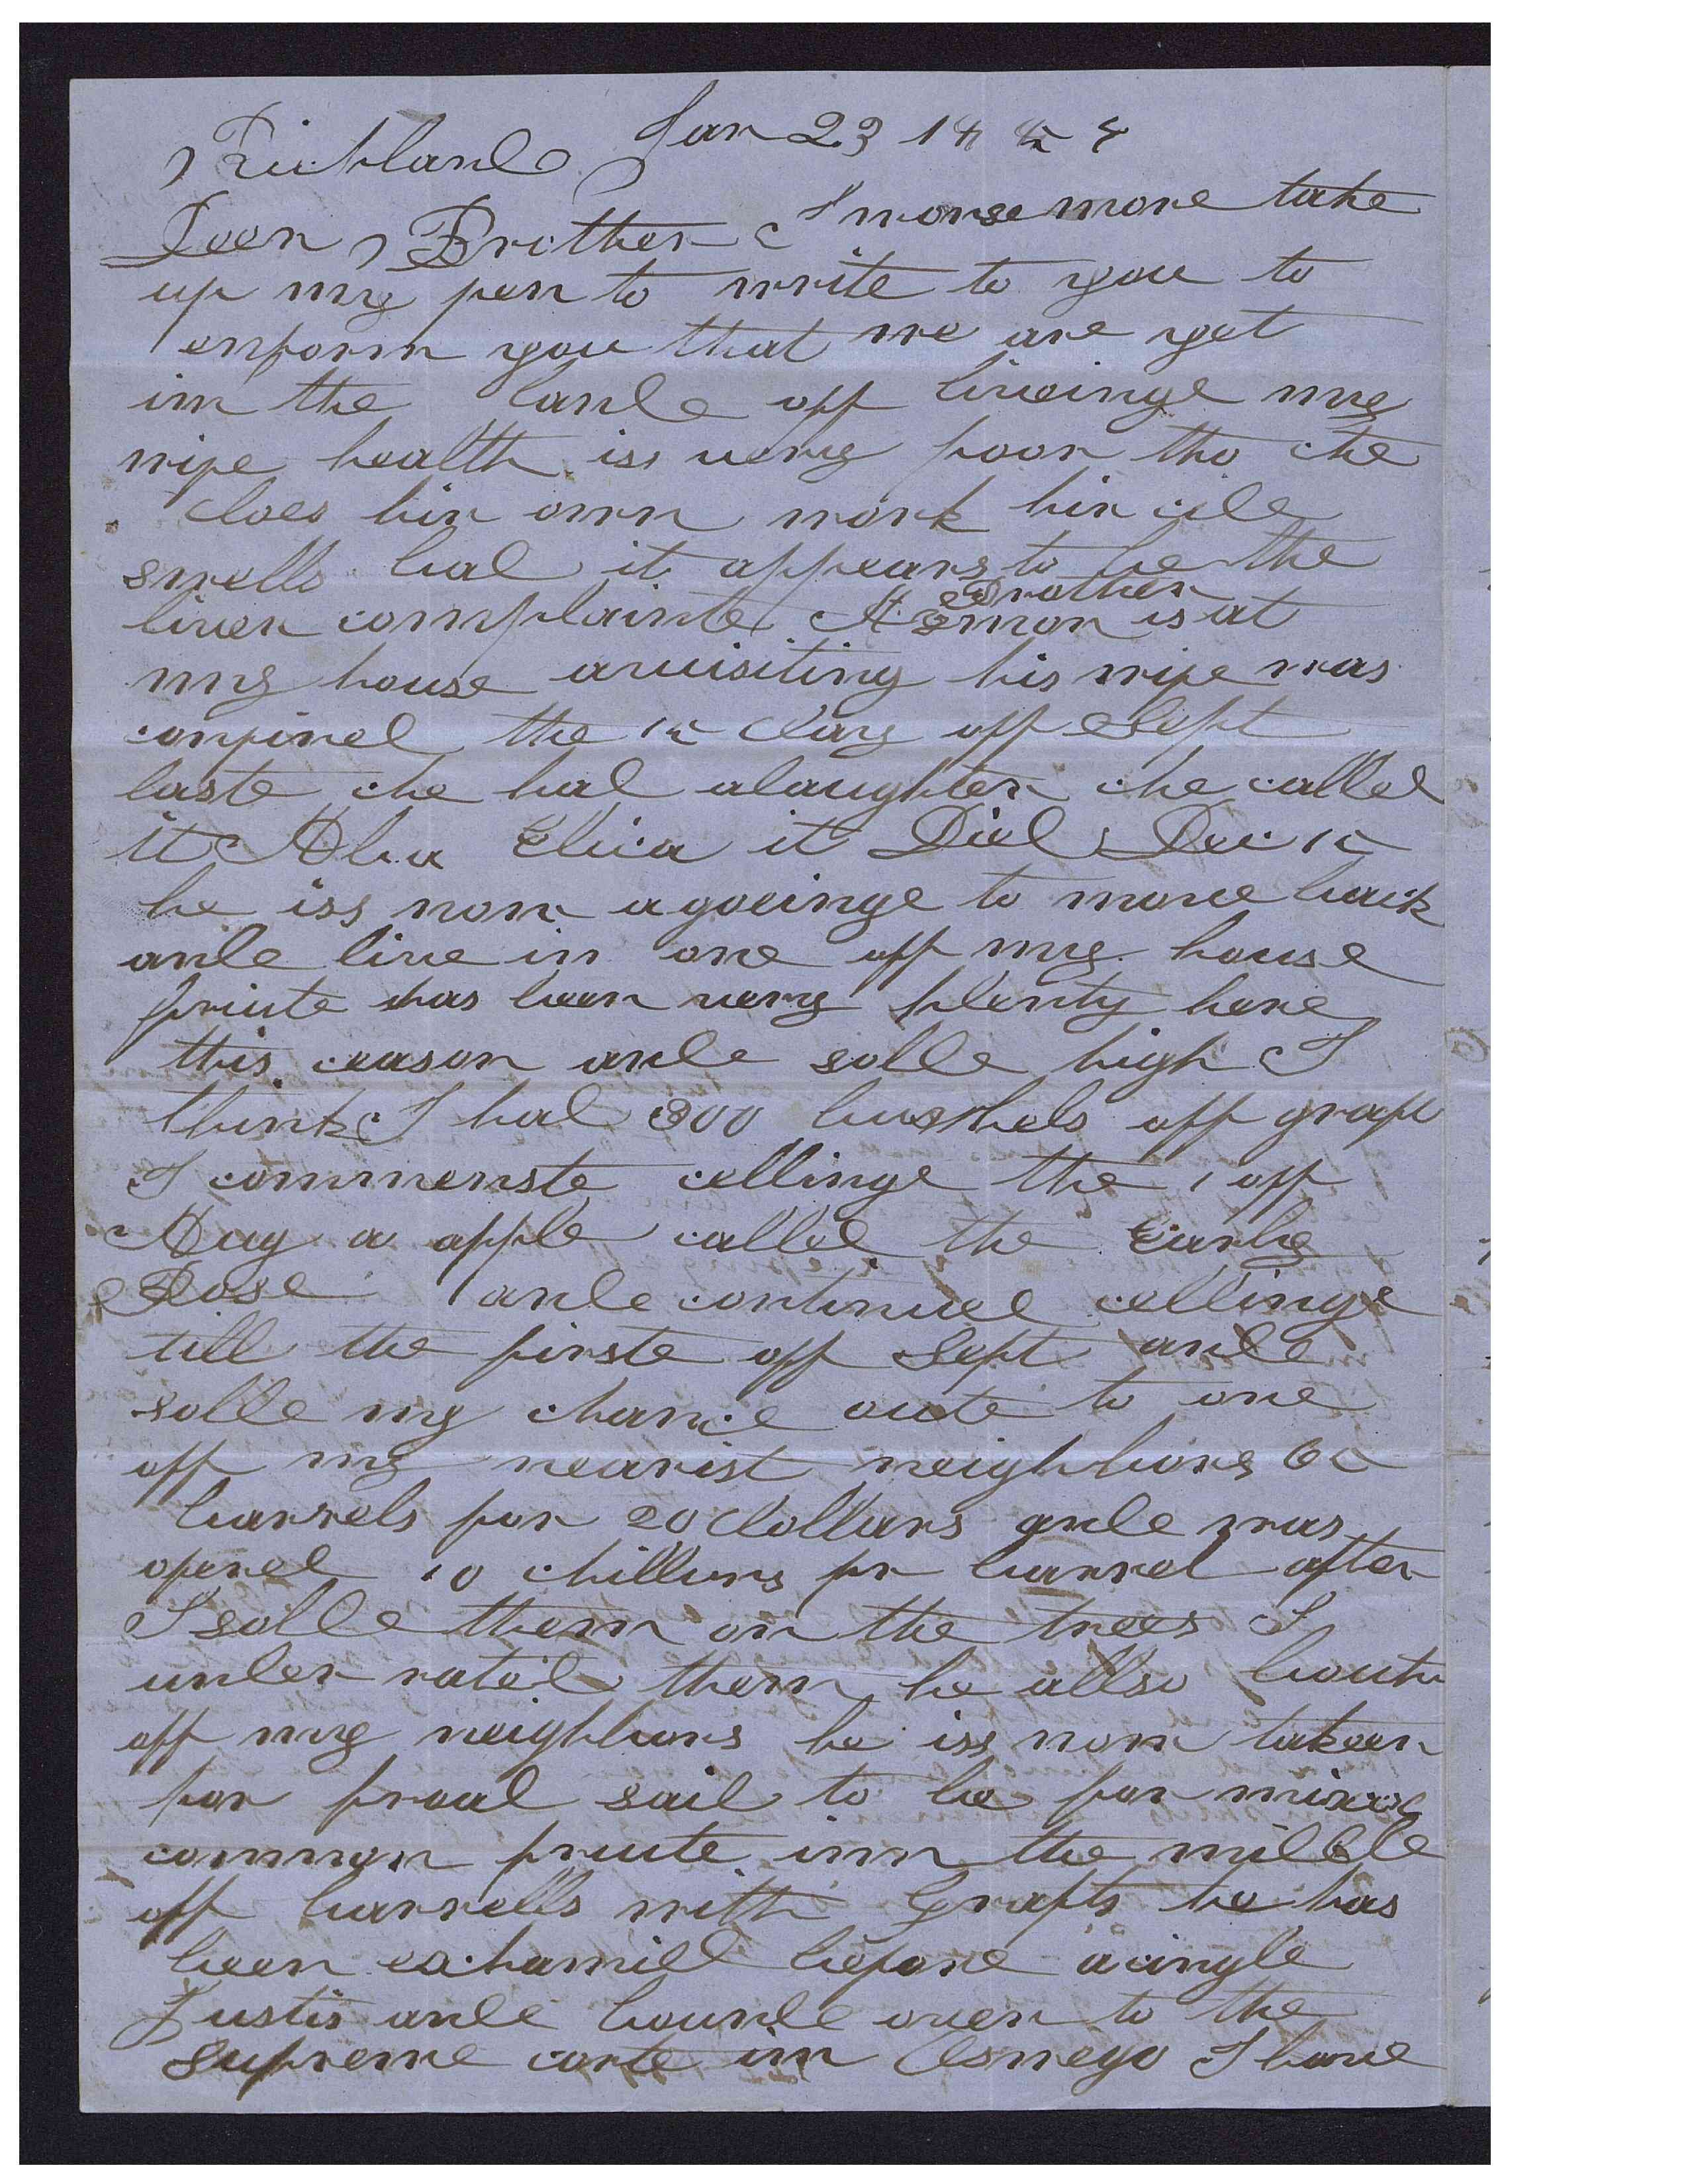 Richland Jan 23 18 5 4
Deer Brother I wonse more take
up my pen to write to you to
enform you that we are yet
inn the lande off liveinge my
wife health iss very poor tho che
does hir own work hir cide
swells bad it appears to be the
Brother
liver complainte A. Emon is at
my house avisiting his wife was
confined the 15 day off Sept
laste che had adaughter che called
it Ada Eliza it Died Dec 15
he iss now agoeinge to move back
ande live in one off my house
fruite has been very plenty here
this season ande solde high I
think I had 300 bushels off graft
I commenste cellinge the 1 off
Aug a apple called the Early
Rose ande continued cellinge
till the firste off Sept ande
solde my chance oute to one
off my nearist neighbors 65
barrels for 20 dollars ande was
offered 10 chillings pr barrel after
I solde them on the trees I
under rated them he allso boute
off my neighbors he iss now takeen
for fraud said to be for
common fruite inn the middle
off barrells with Grafts he has
been exhamied before acingle
Justis ande bounde over to the
Supreme corte inn Oswego I have